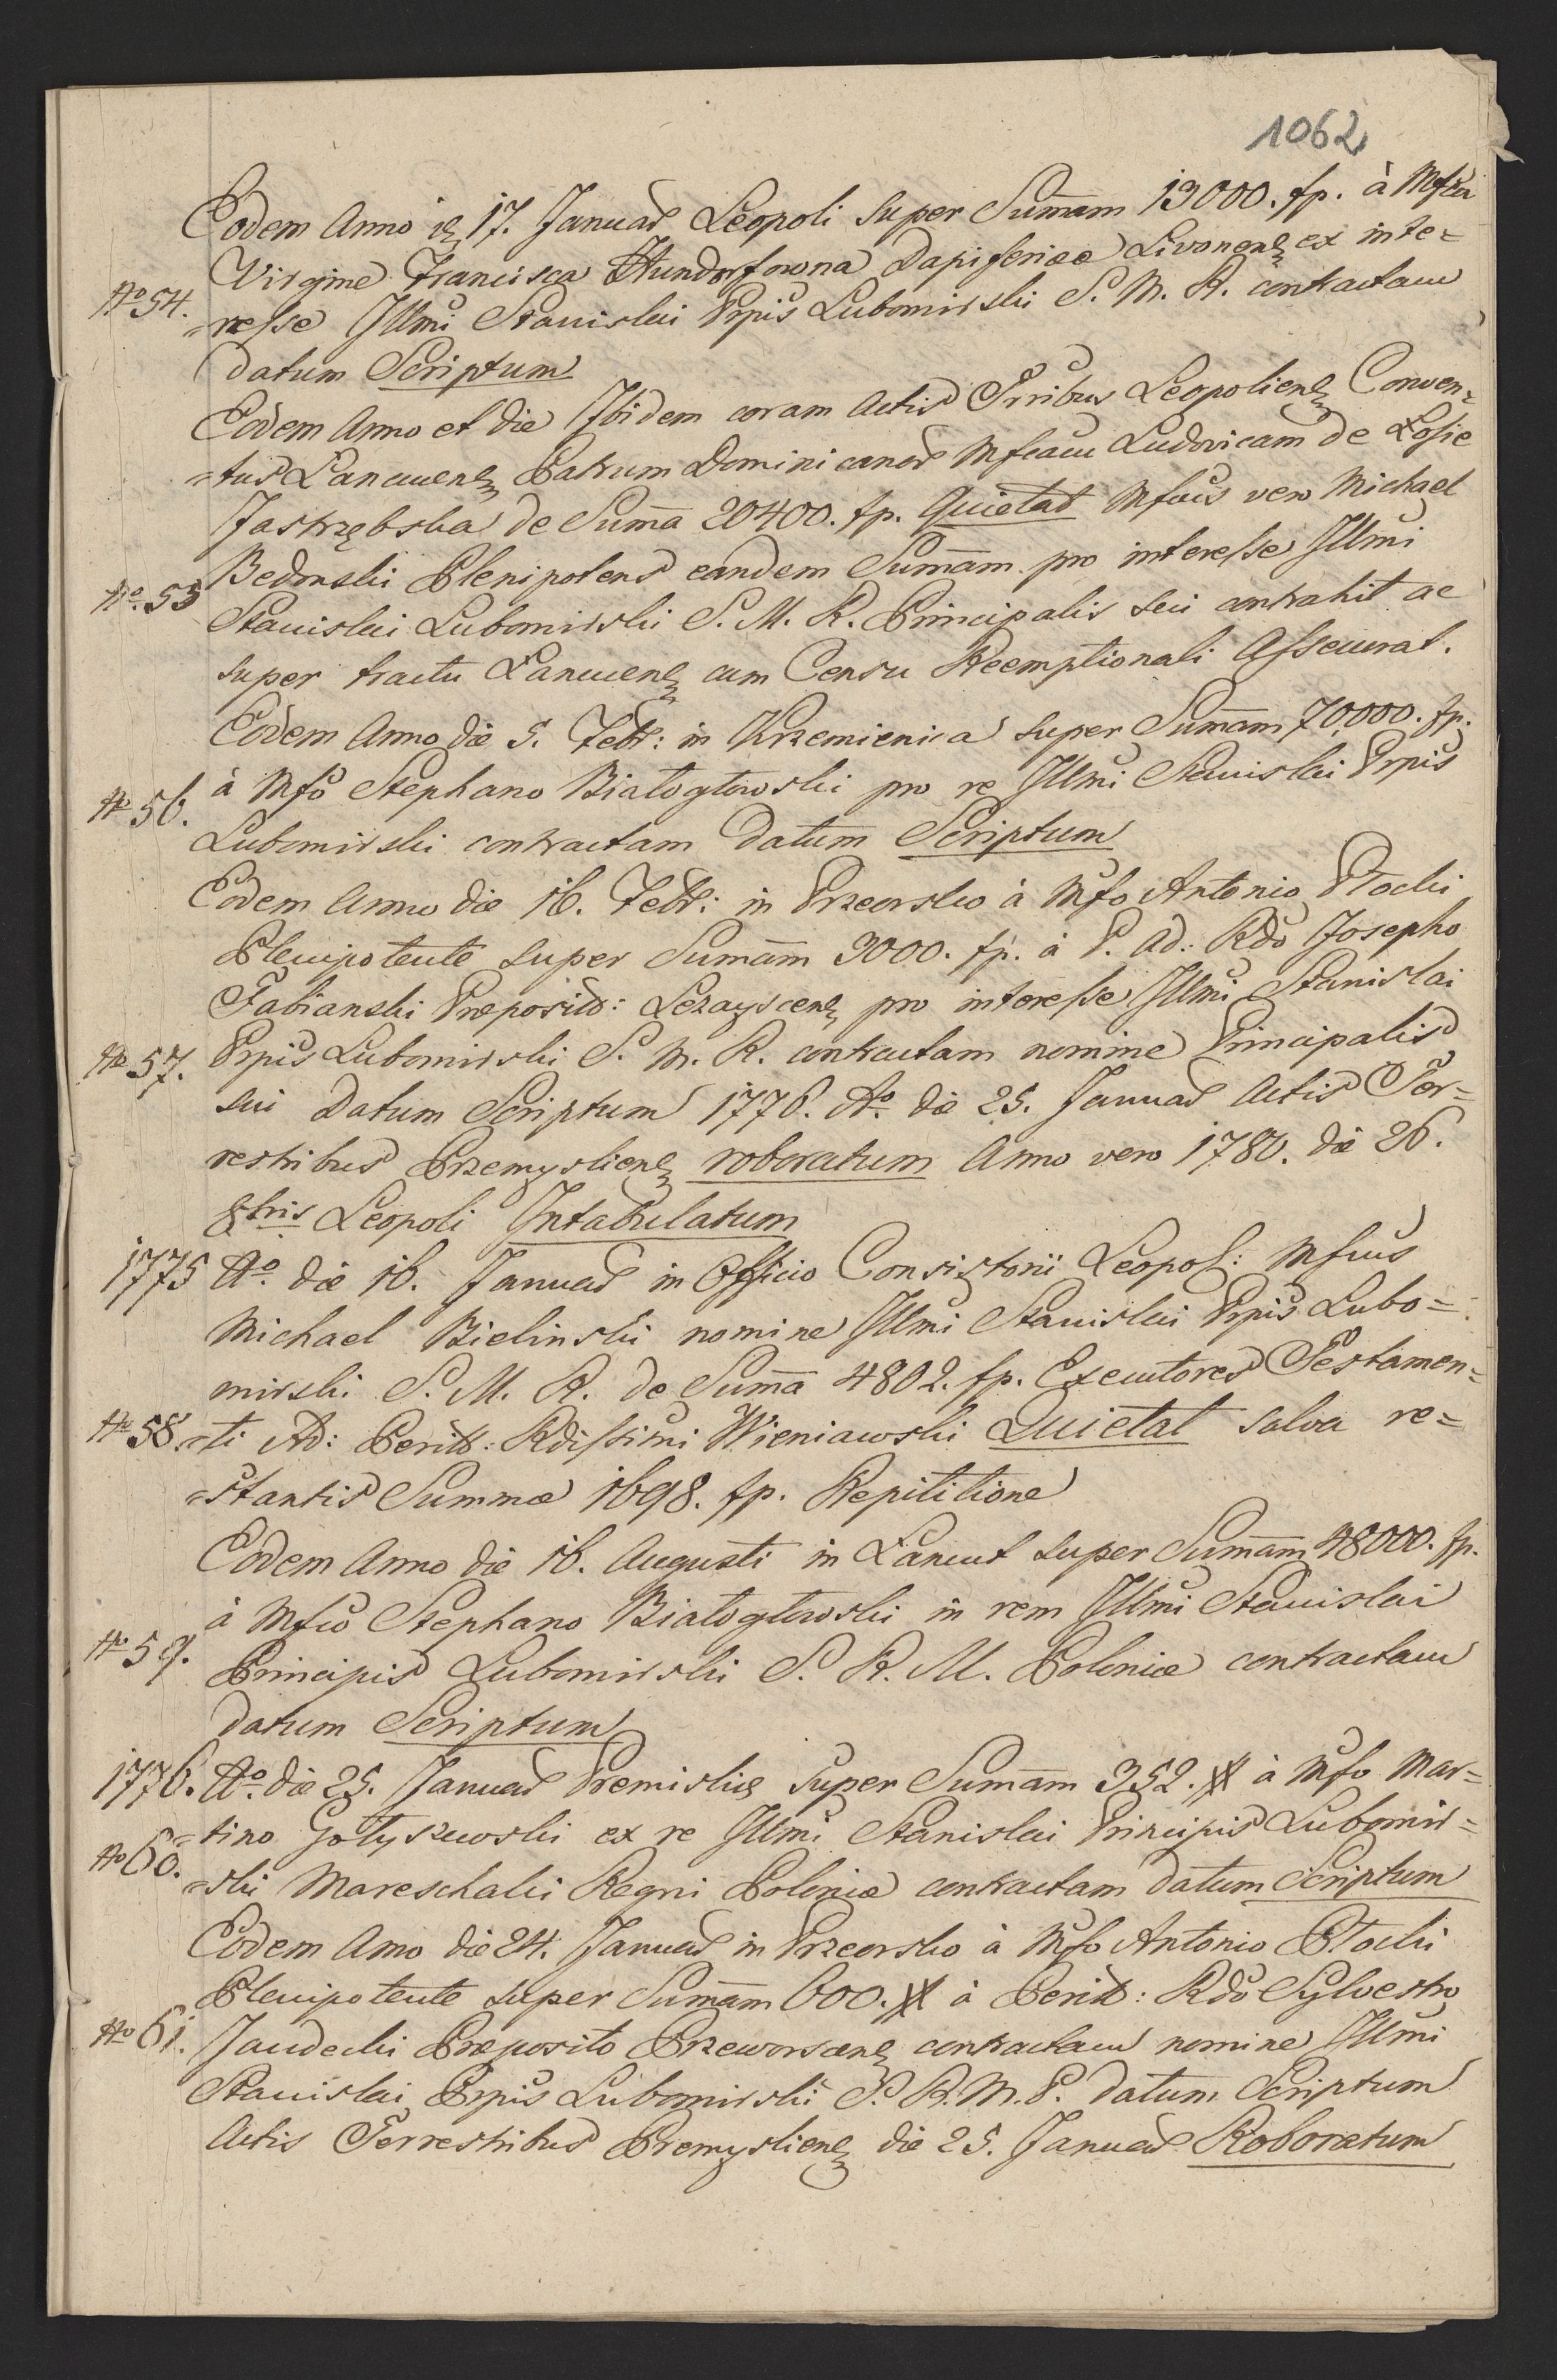 1062
Eodem Anno 17. Januar Leopoli super Sumam 13000. fp. à Mfca
Virgine Francisca Hundorfowna Dapiferiae Livonens ex inte=
No 54. =resse Illmi Stanislai Ppis Lubomirski S. M. R. contractam
datum Scriptum
Eodem Anno et die Ibidem coram Actis Trribus Leopoliens Conven=
=tus Lancuens Patrum Dominicanor Mfcam Ludovicam de Łosie
Jastrzębska de Suma 20400. fp. Quietat Mfcus vero Michael
No 55 Bedonski Plenipotens eandem Sumam pro interesse Illmi
Stanislai Lubomirski S. M. R. Principalis sui contrahit ac
super tractu Lancuens cum Censu Reemptionali Assecurat.
Eodem Anno die 5. Febr: in Krzemienica super Sumam 70,000. fp.
No 56. à Mfo Stephano Białogłowski pro re Illmi Stanislai Ppis
Lubomirski contractam datum Scriptum
Eodem Anno die 16. Febr: in Przeorsko à Mfo Antonio Płocki
Plenipotente super Sumam 3000. fp. à P. Ad: Rdo Josepho
Fabianski Praeposito: Lezayscens pro interesse Illmi Stanislai
No 57. Ppis Lubomirski S. M. R. contractam nomine Principalis
sui Datum Scriptum 1776. Ao. die 25. Januar Actis Ter=
restribus Przemysliens roboratum Anno vero 1780. die 26.
8bris Leopoli Intabulatum
1775 Ao. die 16. Januar in Officio Consistorii Leopol: Mfcus
Michael Bielinski nomine Illmi Stanislai Ppis Lubo=
mirski S. M. R. de Suma 4802. fp. Executores Testamen=
No 58. =ti Ad: Perill: Rdissimi Wieniawski Quietat salva re=
=stantis Summae 1698. fp. Repititione
Eodem Anno die 16. Augusti in Lancut super Sumam 48000. fp.
à Mfco Stephano Białogłowski in rem Illmi Stanislai
No 59. Principis Lubomirski S. R. M. Poloniae contractam
datum Scriptum
1776. Ao. die 25. Januar Premisliae super Sumam 352. # à Mfo Mar=
No 60. =tino Gołyszewski ex re Illmi Stanislai Principis Lubomir=
=ski Mareschalci Regni Poloniae contractam datum Scriptum
Eodem Anno die 24. Januar in Przeorsko à Mfo Antonio Płocki
Plenipotente super Sumam 600. # à Perill: Rdo Sylvestro
No 61. Jandecki Praeposito Przeworscens contractam nomine Illmi
Stanislai Ppis Lubomirski S. R. M. P. datum Scriptum
Actis Terrestribus Premysliens die 25. Januar Roboratum